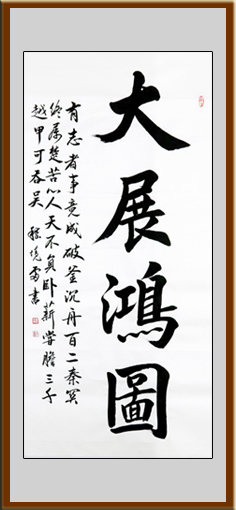 大展鴻圖
有志者事竟成破釜沉舟百二秦關
終屬楚苦心人天不負卧薪嘗膽三千
越甲可吞吴 書